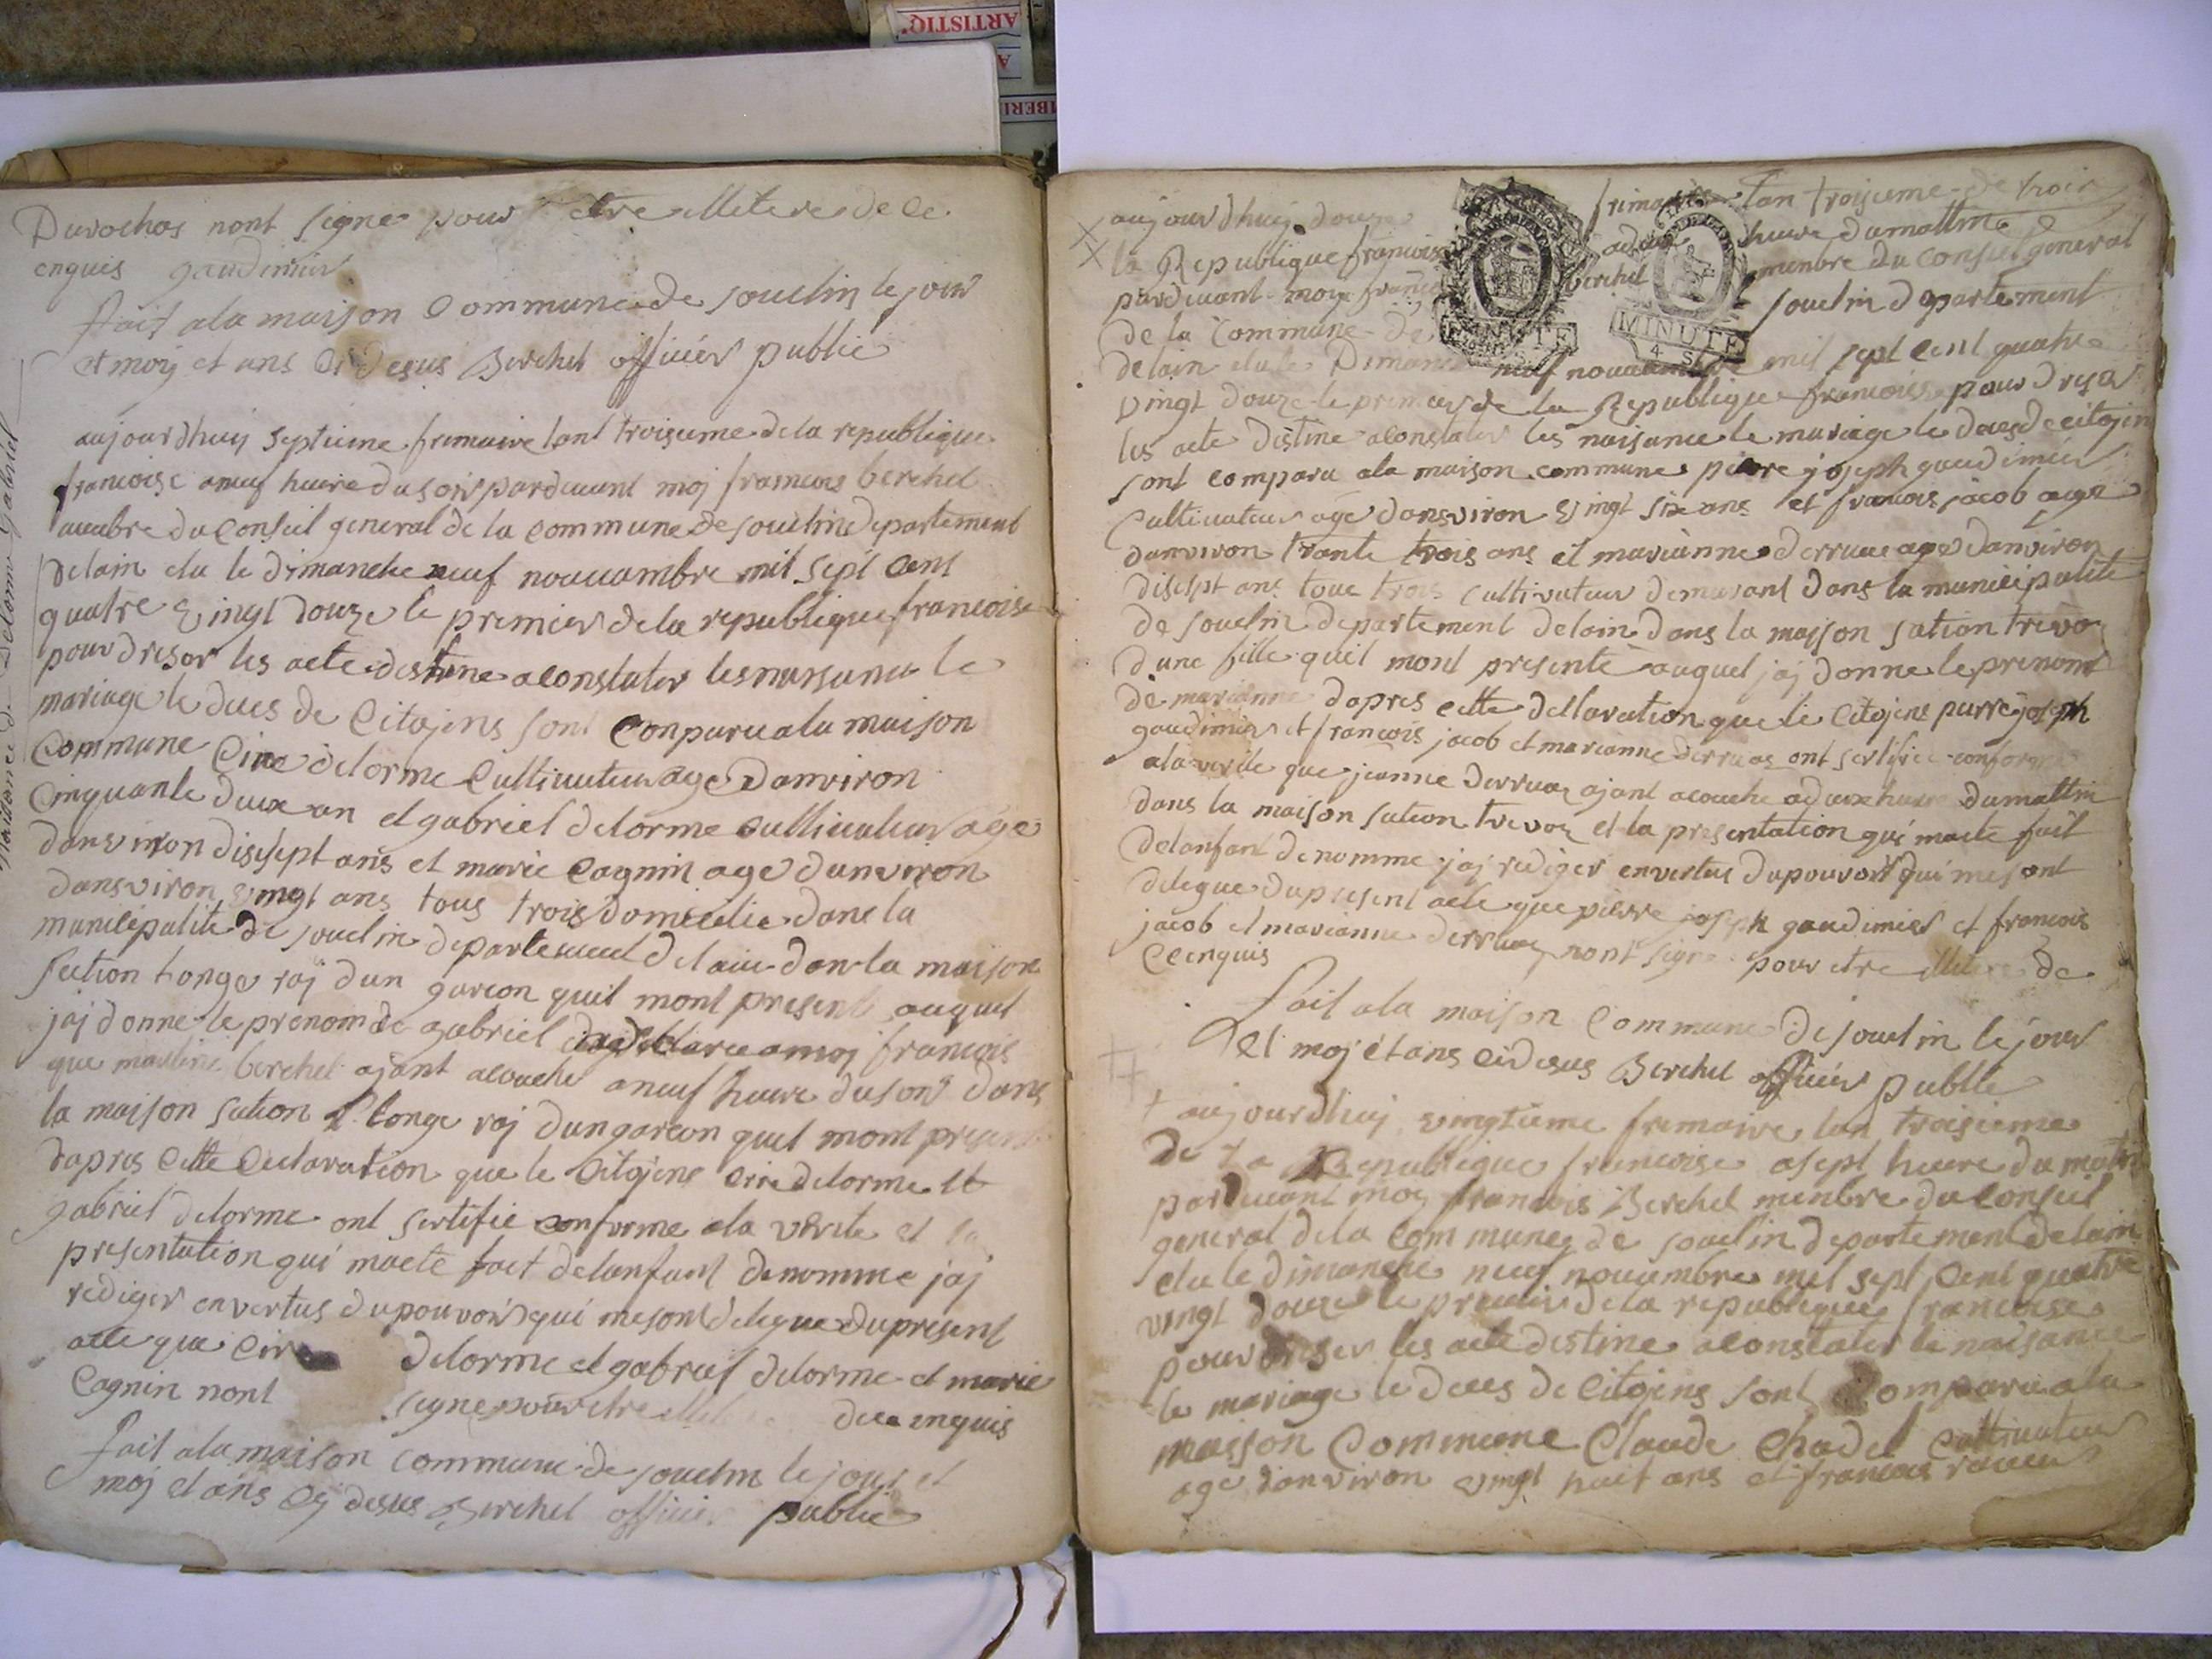 ARTISTIQ'
Durochas nont signe pour etre illitere de ce
enquis gaudimier
fait ala maison Commune de souclin le jour
et moij et ans Ci desus Berchet officier public
Naissance de Delorme Gabriel
aujourdhuij septieme frimaire lant troisieme dela republique
francoise aneuf heure du soir pardeuant moj francois berchet
menbre du Conseil general de la commune de souclin departement
delain elu le dimanche neuf nouuambre mil sept cent
quatre vingt douze le premier dela republique francoise
pour dreser les acte destine aconstater les naisance le
mariage le dues de Citojens sont Conparu ala maison
Commune Cire delorme Cultiuateur age Danviron
Cinquante deux an et gabriel delorme cultiuateur age
danviron disesept ans et marie Cagnin age danviron
dansviron vingt ans tous trois domicilie dans la
municipalite de souclin departement delain dan la maison
section longe raj dun garcon quil mont presente auquel
jaj donne le prenom de gabriel declare amoj francois
que marline berchet ajant acouche aneuf heure dusoir dans
la maison sation longe raj dun garcon quil mont present
dapres Cette Declaration que le Citojens Cire delorme et
gabriel delorme ont sertifie conforme ala verite et la
presentation qui maete fait delanfant denomme jaj
rediger envertus dupouvoir qui mesont delegue dupresent
acte que Cire delorme et gabriel delorme et marie
Cagnin nont signe pour etre dece enquis
fait ala maison commune de souclin le jour et
moj et ans Cy desus Berchet officier public
aujourdhuij douze frimaire lan troisieme de trois
la Republique francoise adeux heure dumattin
pardeuant moy francois berchet menbre du Conseil general
de la Commune de souclin departement
MINUTE
MINUTE
4 S
delain elu le Dimanche neuf nouuambre mil sept cent quatre
vingt douze le premier de la Republique francoise pour dreser
les acte destine aconstater les naisance le mariage le deces de citojen
sont comparu ala maison commune pierre joseph gaudimier
Cultiuateur age dansviron vingt six ans et francois jacob age
danviron trante trois ans et marianne derruaz age danviron
disesept ans tous trois cultivateur demurant dans la municipalite
de souclin departement delain dans la maison sation trevoz
dune fille quil mont presente auquel jaj donne le prenom
de marianne dapres cette dellaration que le Citojens pierre joseph
gaudimier et francois jacob et marianne derruaz ont sertifie conforme
ala verite que jeanne derruaz ajant acouche adeux heure dumattin
dans la maison sation trevoz et la presentation qui maete fait
delanfant denomme jaj rediger envertus dupouvoir qui mesont
delegue dupresent acte que pierre joseph gaudimier et francois
jacob et marianne derruaz nont signe pour etre illitere de
Ceenquis
fait ala maison Commune de souclin le jour
et moj etans cidesus Berchet officier public
aujourdhuj vingtieme frimaire lan troisieme
de la Republique francoise asept heure du matin
pardeuant moj francois Berchet menbre du Conseil
general dela Commune de souclin departement delain
elu le dimanche neuf nouembre mil sept cent quatre
vingt douze le premier dela republique francoise
pour dreser les acte destine aconstater la naisance
le mariage le deces de Citojens sont Comparu ala
maison Commune Claude Chadel Cultiuateur
age danviron vingt huit ans et francois